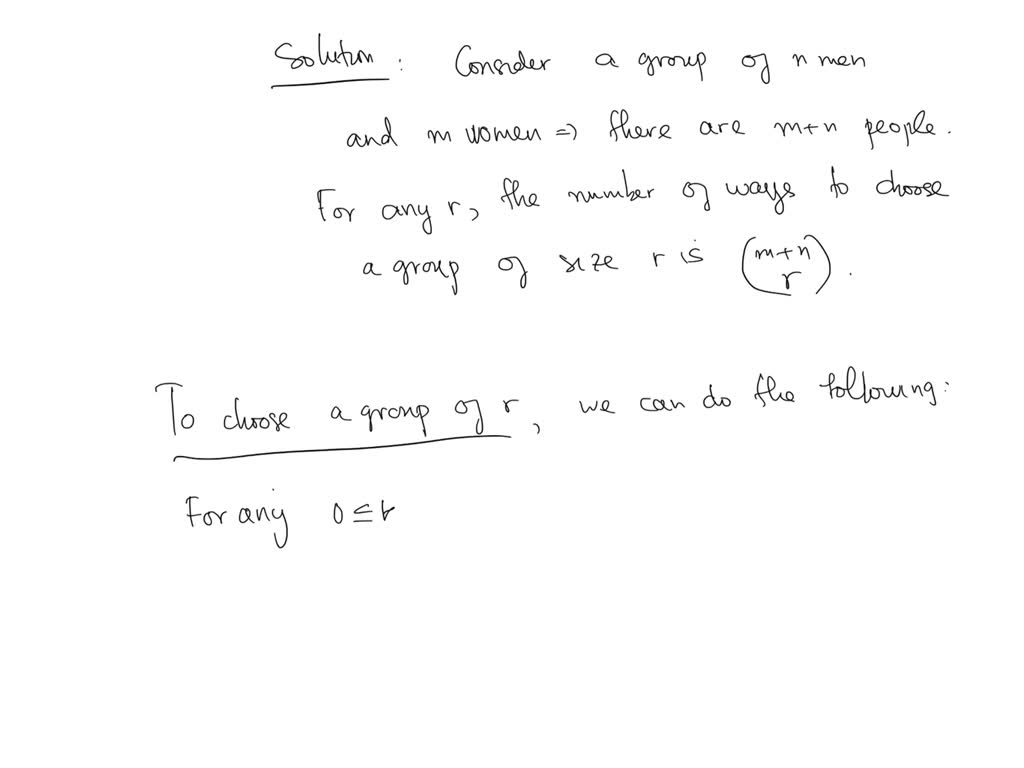 Solution : Consider a group of n men
and m women => there are m+n people.
For any r, the number of ways to choose
a group of size r is (m+n r).
To choose a group of r, we can do the following:
For any 0 ≤